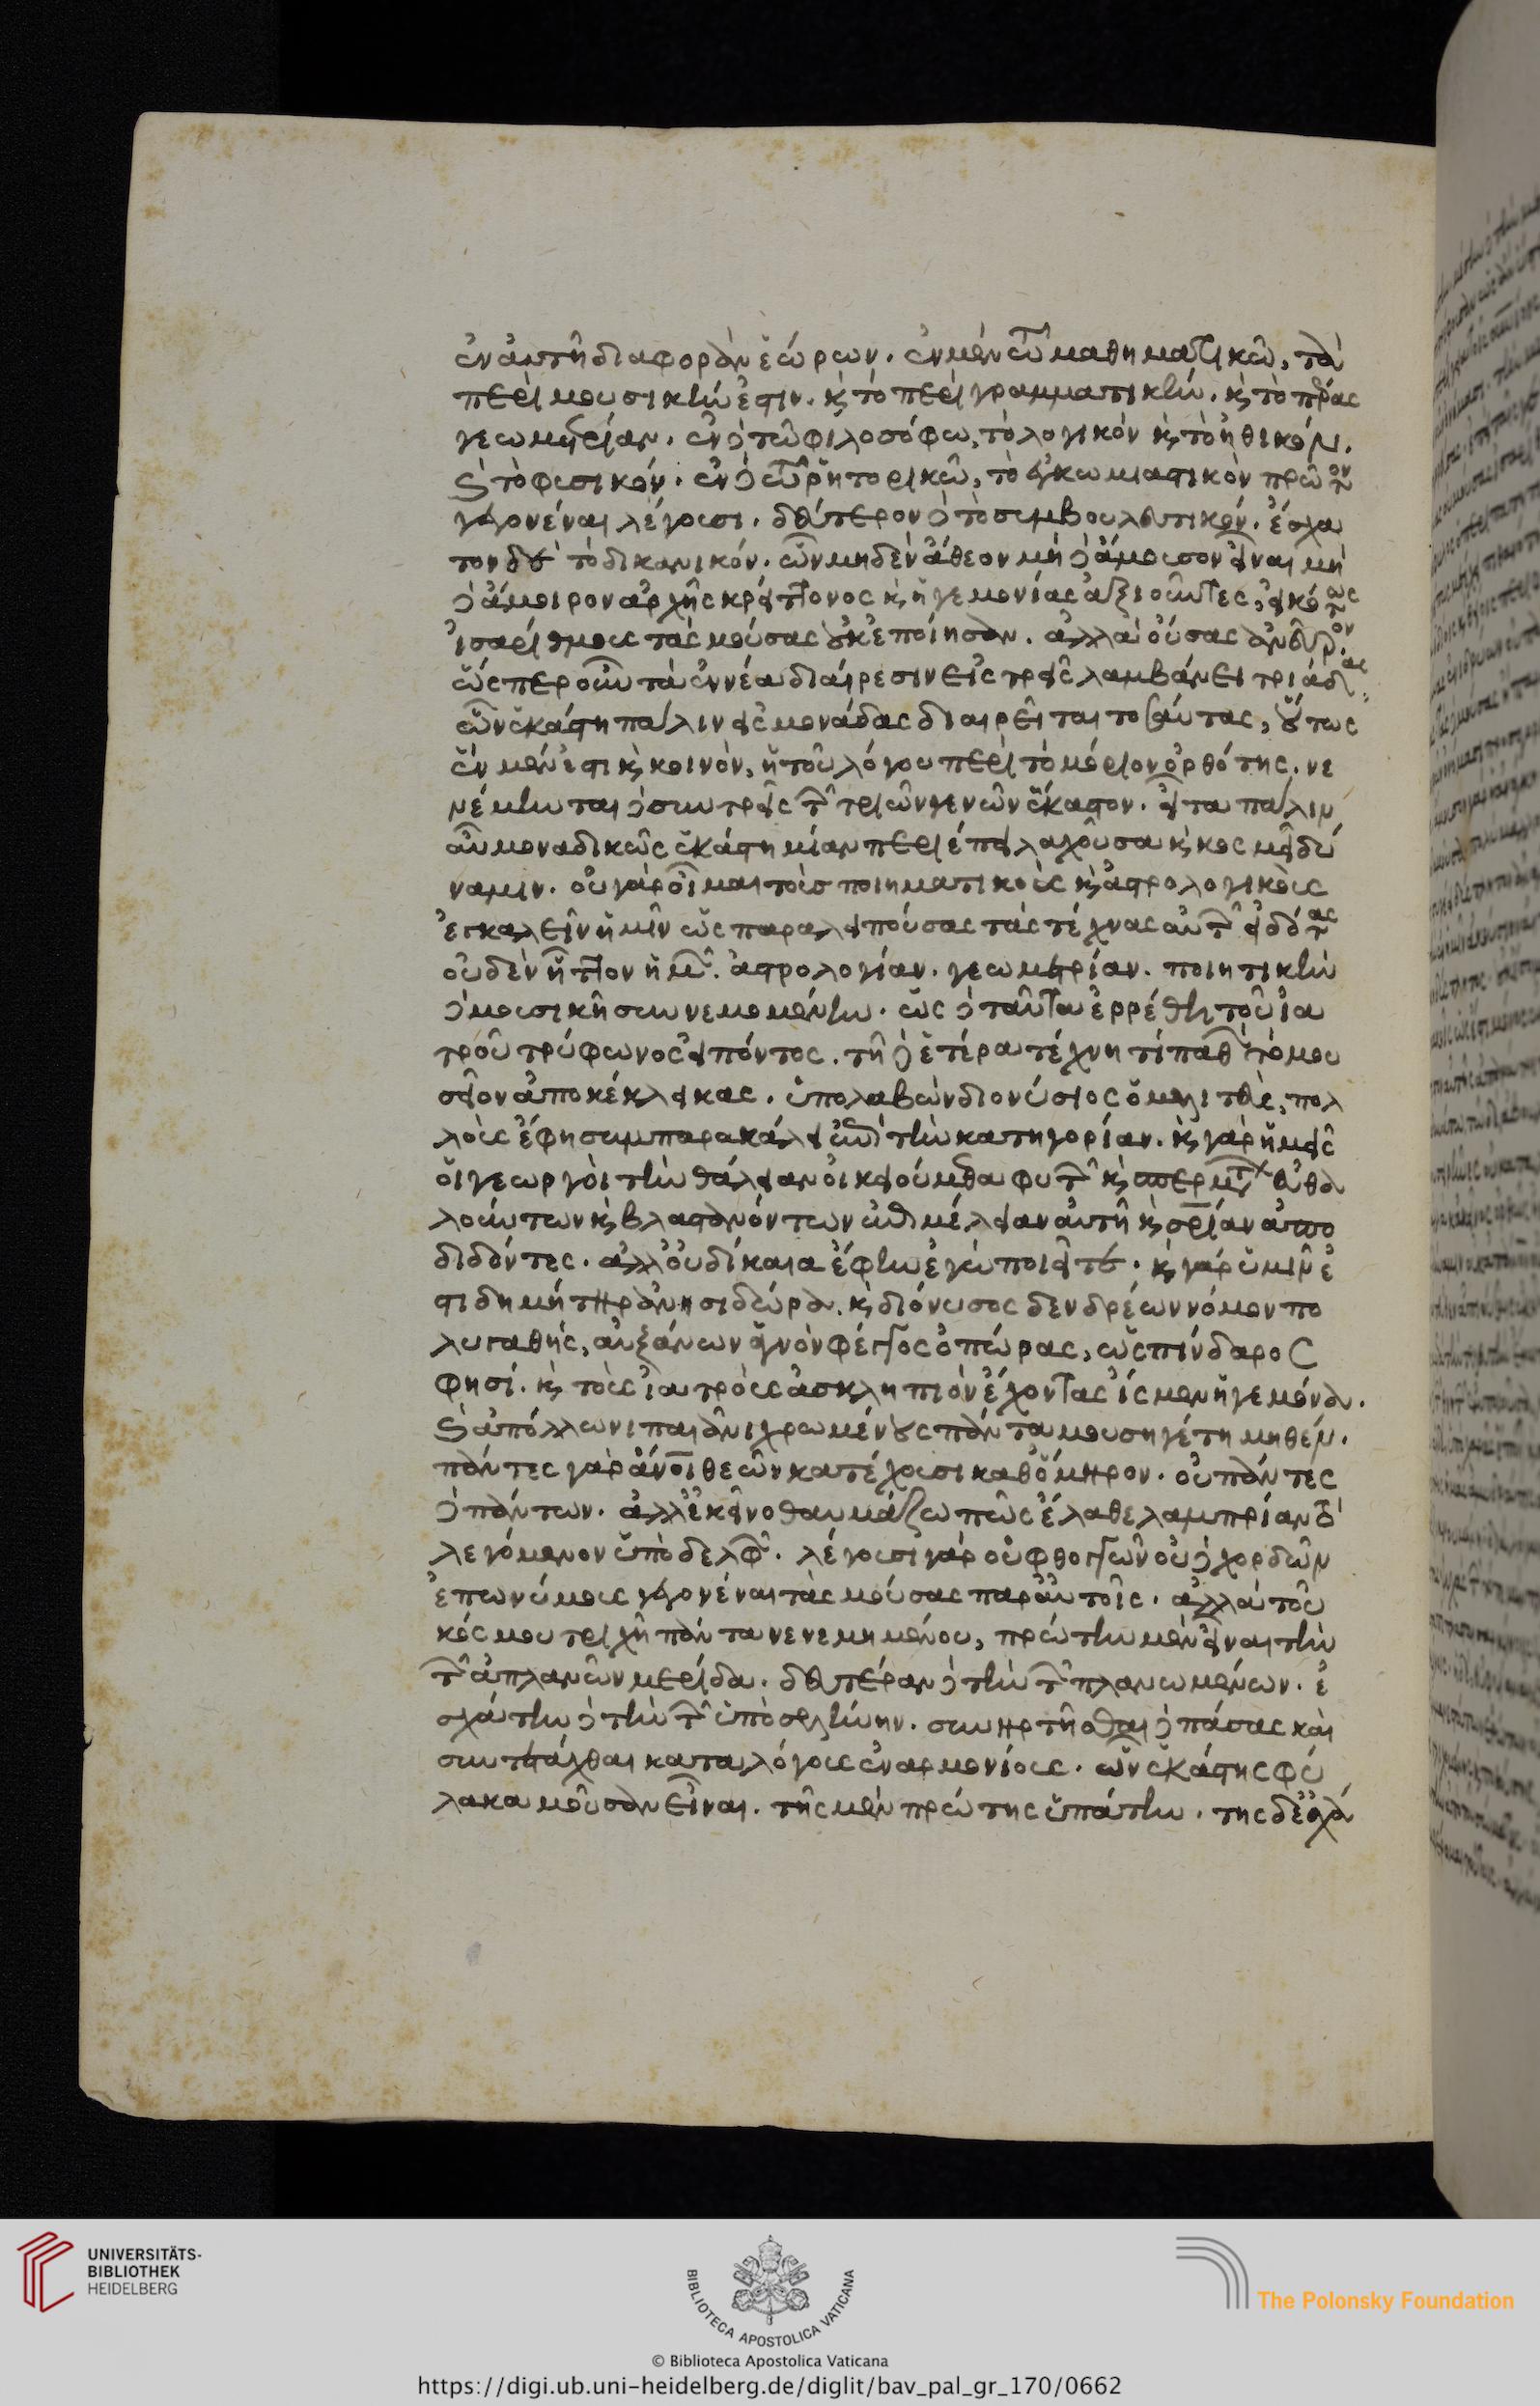 ἐν αὐτῇ διαφορὰν ἑώρων. ἐν μὲν τῶ μαθηματικῶ, τὸ
περὶ μουσικὴν ἐστιν. κ τὸ περὶ γραμματικήν. κ τὸ πρὸς
γεωμετρίαν. ἐν δὲ τῶ φιλοσόφω, τὸ λογικὸν κ τὸ ἠθικὸν.
κ τὸ φυσικόν. ἐν δὲ τῶ ῥητορικῶ, τὸ ἐγκωμιαστικὸν πρῶτον
γεγονέναι λέγουσι. δεύτερον δὲ τὸ συμβουλευτικόν. ἔσχα
τον δὲ τὸ δικανικόν. ὧν μηδὲν ἄθεον μὴ δὲ ἄμουσον εἶναι μὴ
δὲ ἄμοιρον ἀρχῆς κρείττονος κ ἡγεμονίας ἀξιοῦντες, εἰκότως
ἰσαρίθμους τὰς μούσας οὐκ ἐποίησαν. ἀλλὰ οὔσας ἀνεῦρον.
ὥσπερ οὖν τὰ ἐννέα διαίρεσιν εἰς τρεῖς λαμβάνει τριάδας
ὧν ἑκάστη πάλιν εἰς μονάδας διαιρεῖται τοσαύτας, οὕτως
ἓν μέν ἐστι κ κοινὸν, ἡ τοῦ λόγου περὶ τὸ μόριον ὀρθότης. νε
νέμηνται δὲ σὺν τρεῖς τῶν τριῶν γενῶν ἕκαστον. εἶτα πάλιν
αὖ μοναδικῶς ἑκάστη μίαν περιέπει λαχοῦσα κ κοσμεῖ δύ
ναμιν. οὐ γὰρ οἶμαι τοὺσ ποιηματικοὺς κ ἀστρολογικοὺς
ἐγκαλεῖν ἡμῖν ὡς παραλειπούσας τὰς τέχνας αὐτῶν εἰδότας
οὐδὲν ἧττον ἡμῶν. ἀστρολογίαν. γεωμετρίαν. ποιητικὴν
δὲ μουσικῆ συννεμομένην. ὡς δὲ ταῦτα ἐρρέθη τοῦ ἰα
τροῦ τρύφωνος εἰπόντος. τῆ δὲ ἑτέρα τέχνη τί παθὼν τὸ μου
σεῖον ἀποκέκλεικας. ὑπολαβὼν διονύσιος ὁ μελιτεὺς, πολ
λοὺς ἔφη συμπαρακάλει ἐπὶ τὴν κατηγορίαν. κ γὰρ ἡμεῖς
οἱ γεωργοὶ τὴν θάλειαν οἰκειούμεθα φυτῶν κ σπερμάτων εὐθα
λούντων κ βλαστανόντων ἐπιμέλειαν αὐτῆ κ σωτηρίαν ἀπο
διδόντες. ἀλλ' οὐ δίκαια ἔφην ἐγὼ ποιεῖτε. κ γὰρ ὑμῖν ἐ
στι δημήτηρ ἀνησιδώρα. κ διόνυσος δενδρέων νόμον πο
λυγαθὴς, αὐξάνων ἁγνὸν φέγγος ὀπώρας, ὡς πίνδαρος
φησί. κ τοὺς ἰατροὺς ἀσκληπιὸν ἔχοντας ἴσμεν ἡγεμόνα.
κ ἀπόλλωνι παιᾶνι χρωμένους πάντα μουσηγέτη μηθέν.
πάντες γὰρ ἄνοι θεῶν κατέχουσι καθ' ὅμηρον. οὐ πάντες
δὲ πάντων. ἀλλ' ἐκεῖνο θαυμάζω πῶς ἔλαθε λαμπρίαν τὸ
λεγόμενον ὑπὸ δελφῶν. λέγουσι γὰρ οὐ φθόγγων οὐ δὲ χορδῶν
ἐπωνύμους γεγονέναι τὰς μούσας παρ' αὐτοῖς. ἀλλὰ τοῦ
κόσμου τριχῆ πάντα νενεμημένου, πρώτην μὲν εἶναι τὴν
τῶν ἀπλανῶν μερίδα. δευτέραν δὲ τὴν τῶν πλανωμένων. ἐ
σχάτην δὲ τὴν τῶν ὑπὸ σελήνην. συνηρτῆσθαι δὲ πάσας καὶ
συντετάχθαι κατὰ λόγους ἐναρμονίους. ὧν ἑκάστης φύ
λακα μοῦσαν εἶναι. τῆς μὲν πρώτης ὑπάτην. τῆς δὲ ἐσχά
UNIVERSITÄTS-
BIBLIOTHEK
HEIDELBERG
BIBLIOTECA APOSTOLICA VATICANA
The Polonsky Foundation
© Biblioteca Apostolica Vaticana
https://digi.ub.uni-heidelberg.de/diglit/bav_pal_gr_170/0662